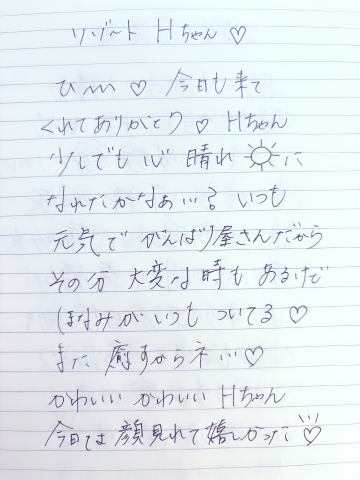 リゾート Hちゃん♡
ひm♡ 今日も来て
くれてありがとう♡ Hちゃん
少しでも心 晴れ☀に
なれたかなぁ…? いつも
元気で がんばり屋さんだから
その分 大変な時も あるけど
ほなみが いつも ついてる♡
また 癒すからネ…♡
かわいい かわいい Hちゃん
今日は 顔見れて 嬉しかった♡